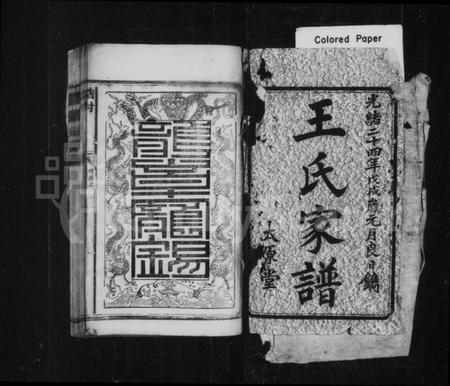 Colored Paper
光緒二十四年戊戌歲元月良日鐫
王氏家譜
太原堂
龍章寵錫